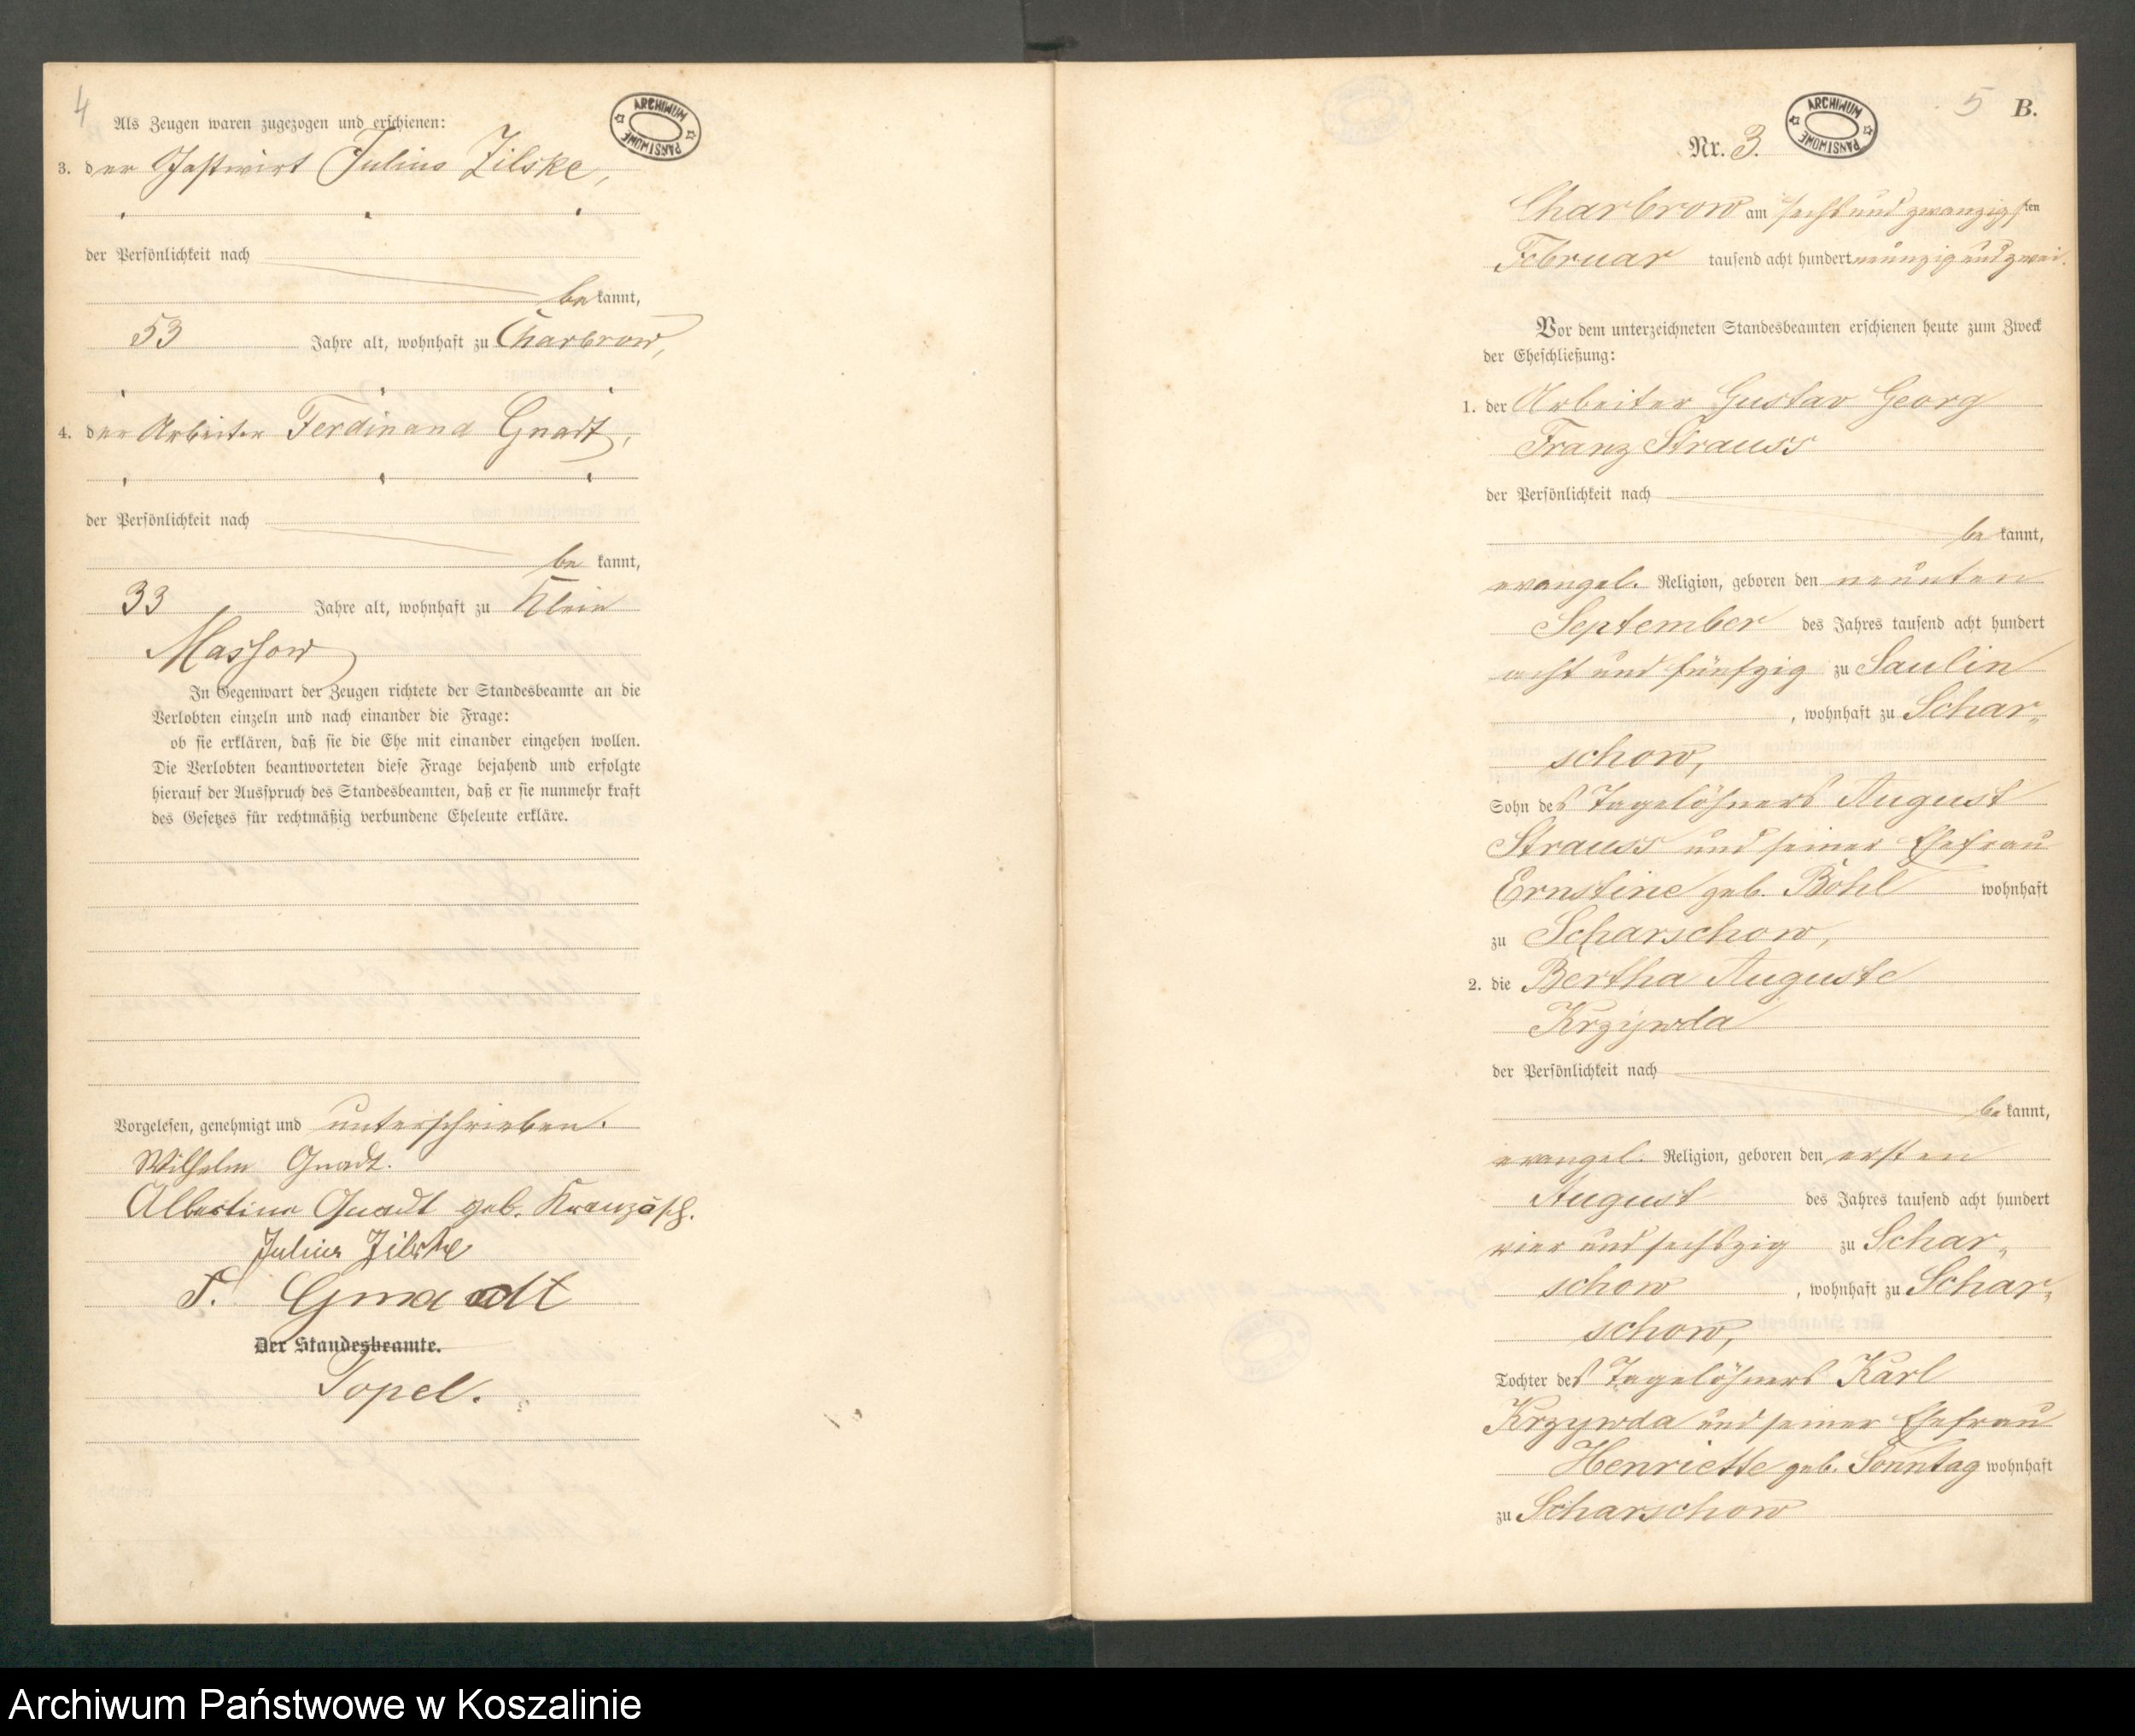 4
Als Zeugen waren zugezogen und erschienen:
ARCHIWUM PAŃSTWOWE
3. der Gastwirt Julius Zilske,
der Persönlichkeit nach
be kannt,
53 Jahre alt, wohnhaft zu Charbrow,
4. der Arbeiter Ferdinand Gnadt,
der Persönlichkeit nach
be kannt,
33 Jahre alt, wohnhaft zu Klein
Massow
In Gegenwart der Zeugen richtete der Standesbeamte an die
Verlobten einzeln und nach einander die Frage:
ob sie erklären, daß sie die Ehe mit einander eingehen wollen.
Die Verlobten beantworteten diese Frage bejahend und erfolgte
hierauf der Ausspruch des Standesbeamten, daß er sie nunmehr kraft
des Gesetzes für rechtmäßig verbundene Eheleute erkläre.
Vorgelesen, genehmigt und unterschrieben.
Wilhelm Gnadt.
Albertine Gnadt geb.
Julius Zilske
F. Gnadt
Der Standesbeamte.
Topel.
5 B.
ARCHIWUM PAŃSTWOWE
Nr. 3.
Charbrow am sechs und zwanzigsten
Februar tausend acht hundert neunzig und zwei.
Vor dem unterzeichneten Standesbeamten erschienen heute zum Zweck
der Eheschließung:
1. der Arbeiter Gustav Georg
Franz Strauss
der Persönlichkeit nach
be kannt,
evangel. Religion, geboren den neunten
September des Jahres tausend acht hundert
acht und fünfzig zu Saulin
, wohnhaft zu Schar-
schow,
Sohn des Tagelöhners August
Strauss und seiner Ehefrau
Ernstine geb. Böhl wohnhaft
zu Scharschow,
2. die Bertha Auguste
Krzywda
der Persönlichkeit nach
be kannt,
evangel. Religion, geboren den ersten
August des Jahres tausend acht hundert
vier und sechszig zu Schar-
schow , wohnhaft zu Schar-
schow,
Tochter des Tagelöhners Karl
Krzywda und seiner Ehefrau
Henriette geb. Sonntag wohnhaft
zu Scharschow
Archiwum Państwowe w Koszalinie